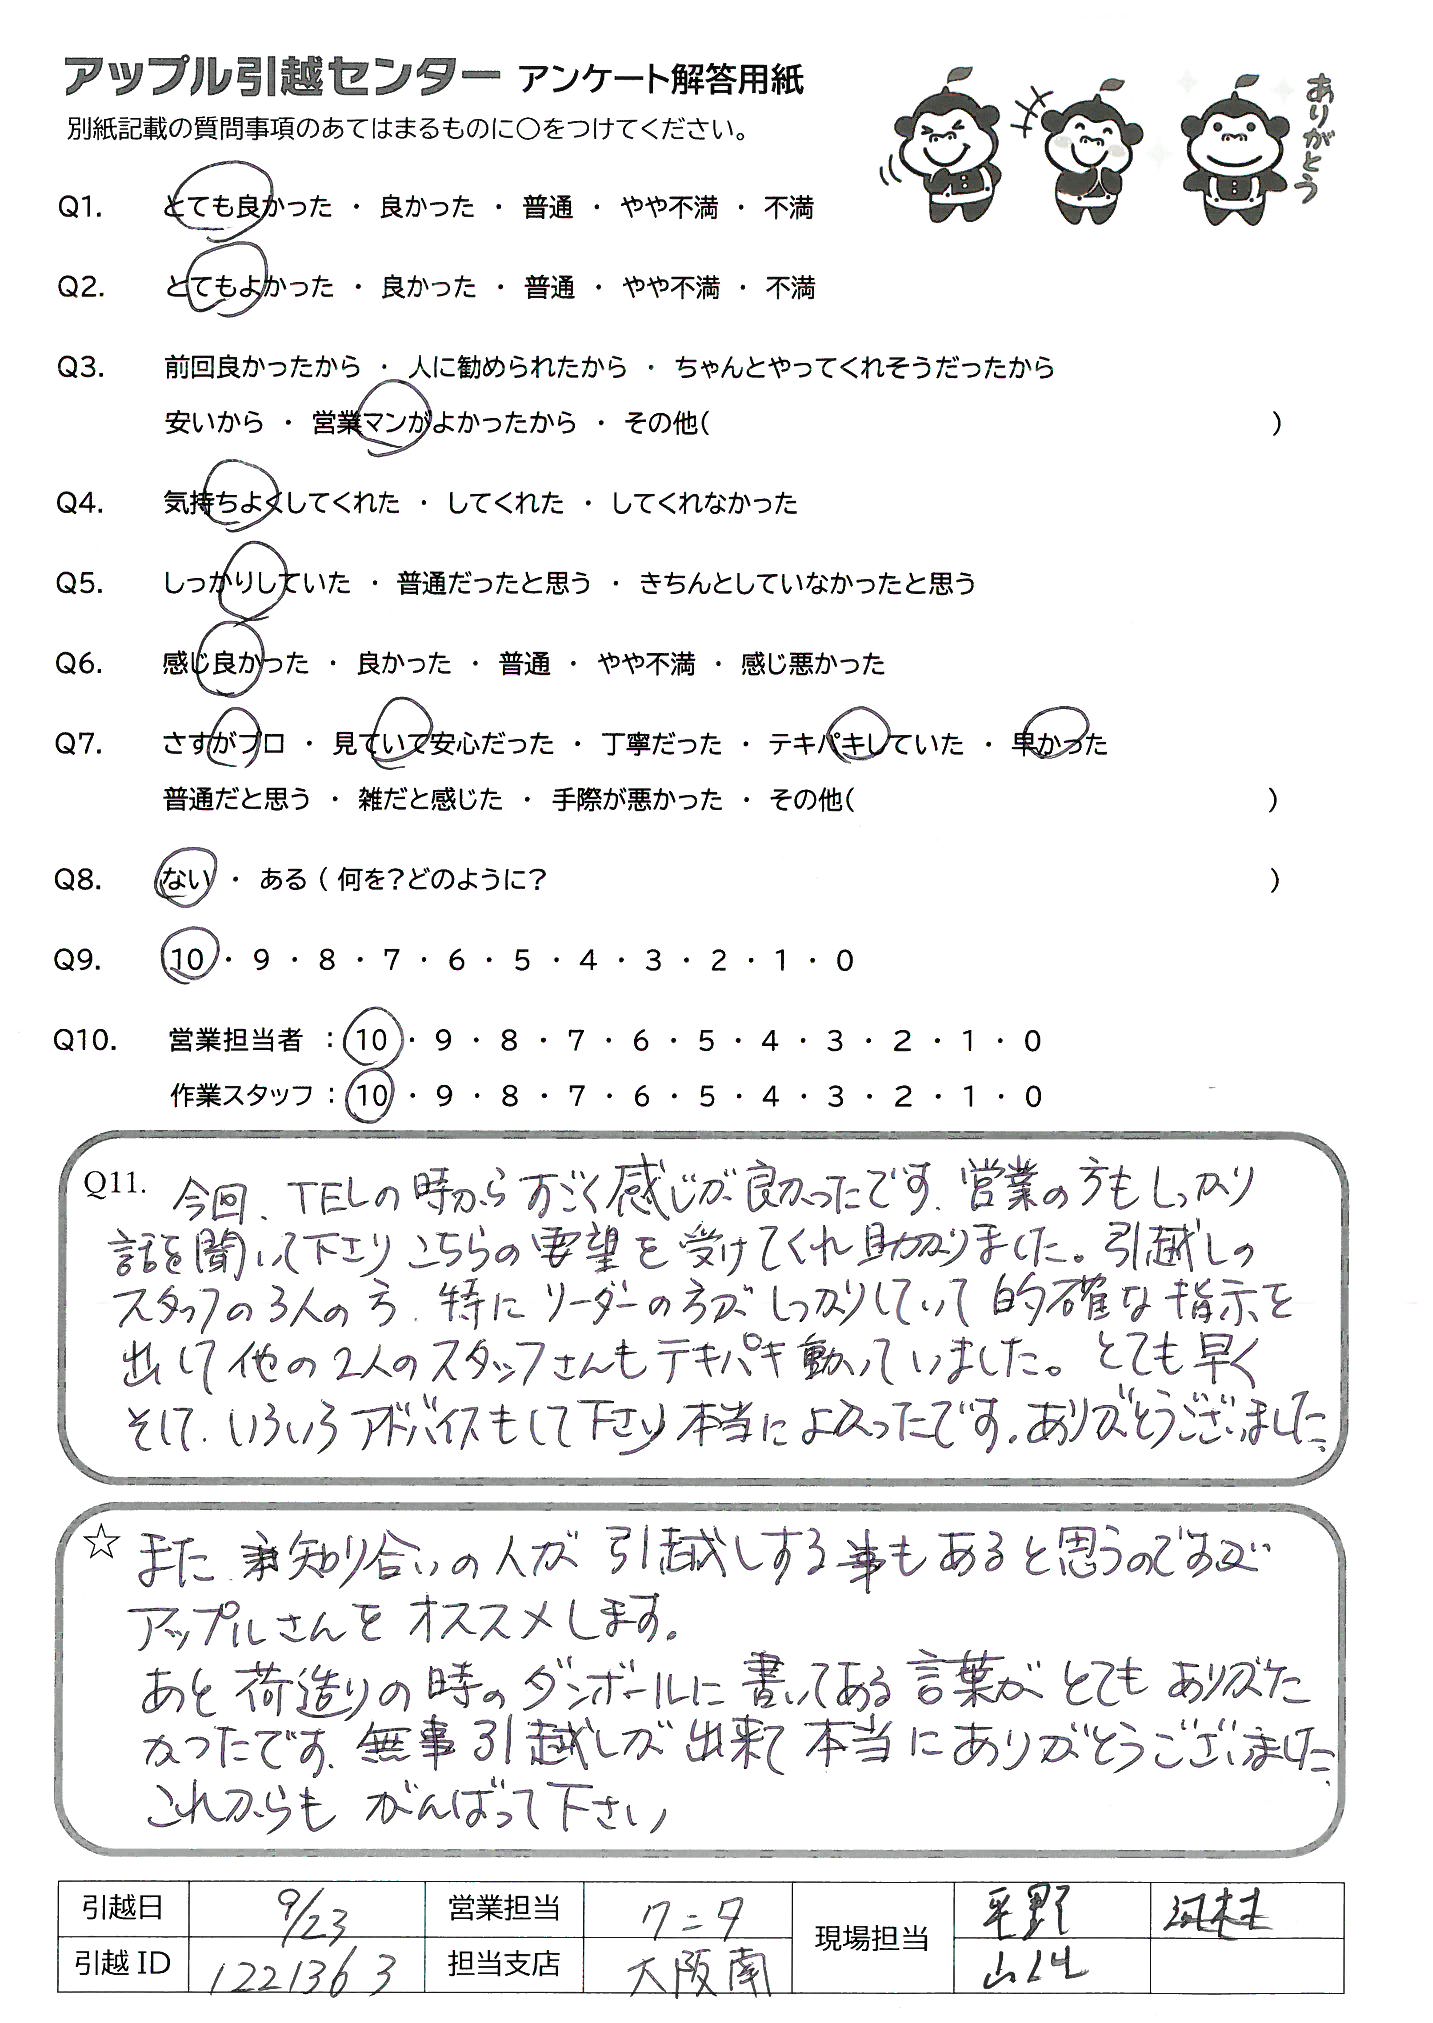 アップル引越センター アンケート解答用紙
別紙記載の質問事項のあてはまるものに〇をつけてください。
ありがとう
Q1. とても良かった ・ 良かった ・ 普通 ・ やや不満 ・ 不満
Q2. とてもよかった ・ 良かった ・ 普通 ・ やや不満 ・ 不満
Q3. 前回良かったから ・ 人に勧められたから ・ ちゃんとやってくれそうだったから
安いから ・ 営業マンがよかったから ・ その他( )
Q4. 気持ちよくしてくれた ・ してくれた ・ してくれなかった
Q5. しっかりしていた ・ 普通だったと思う ・ きちんとしていなかったと思う
Q6. 感じ良かった ・ 良かった ・ 普通 ・ やや不満 ・ 感じ悪かった
Q7. さすがプロ ・ 見ていて安心だった ・ 丁寧だった ・ テキパキしていた ・ 早かった
普通だと思う ・ 雑だと感じた ・ 手際が悪かった ・ その他( )
Q8. ない ・ ある ( 何を?どのように? )
Q9. 10 ・ 9 ・ 8 ・ 7 ・ 6 ・ 5 ・ 4 ・ 3 ・ 2 ・ 1 ・ 0
Q10. 営業担当者 : 10 ・ 9 ・ 8 ・ 7 ・ 6 ・ 5 ・ 4 ・ 3 ・ 2 ・ 1 ・ 0
作業スタッフ : 10 ・ 9 ・ 8 ・ 7 ・ 6 ・ 5 ・ 4 ・ 3 ・ 2 ・ 1 ・ 0
Q11. 今回、TELの時からすごく感じが良かったです。営業の方もしっかり
話を聞いて下さりこちらの要望を受けてくれ助かりました。引越しの
スタッフの3人の方、特にリーダーの方がしっかりしていて的確な指示を
出して他の2人のスタッフさんもテキパキ動いていました。とても早く
そして、いろいろアドバイスもして下さり本当によかったです。ありがとうございました。
☆ また、知り合いの人が引越しする事もあると思うのですが
アップルさんをオススメします。
あと荷造りの時のダンボールに書いてある言葉がとてもありがた
かったです。無事引越しが出来て本当にありがとうございました。
これからもがんばって下さい
引越日 9/23 営業担当 ワニタ 現場担当 平野 河村
引越ID 1221363 担当支店 大阪南